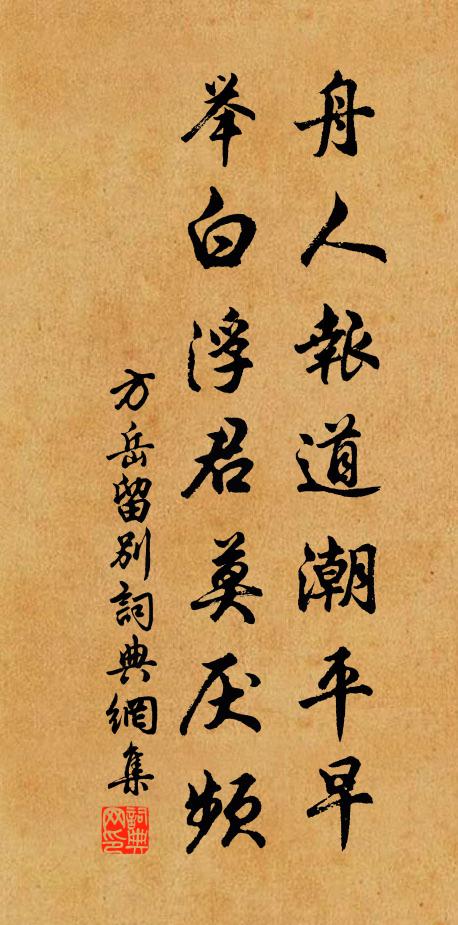 舟人報道潮平早
举白浮君莫厌頻
方岳留别詞典網集
詞典网印